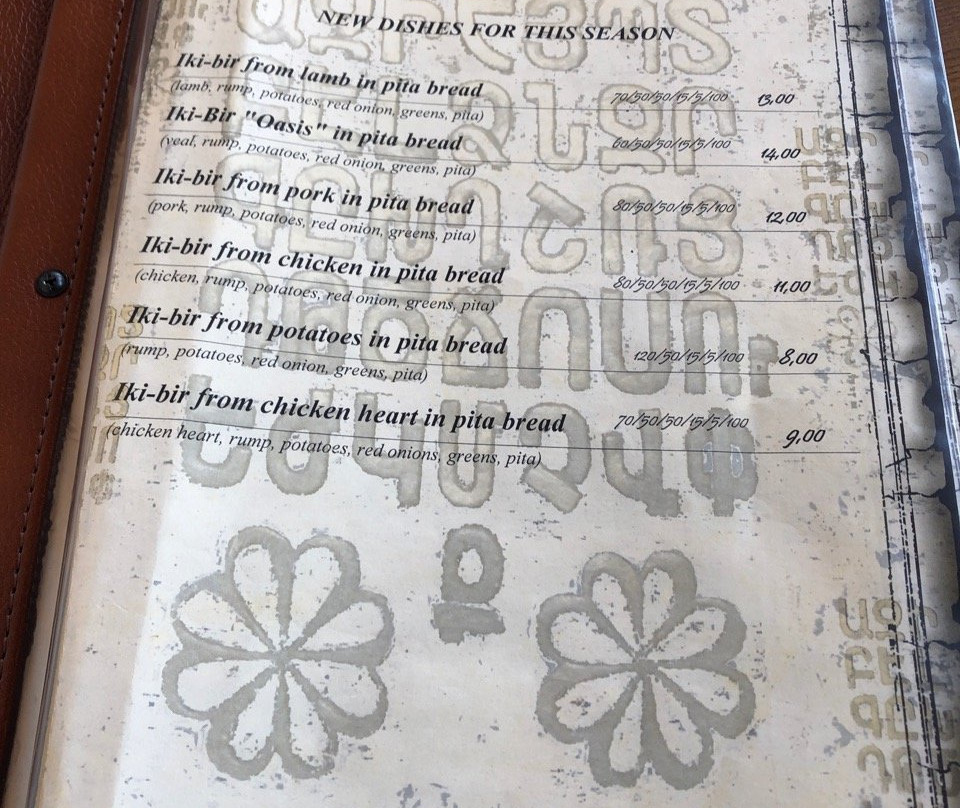 NEW DISHES FOR THIS SEASON
Iki-bir from lamb in pita bread 70/50/50/15/5/100 13,00
(lamb, rump, potatoes, red onion, greens, pita)
Iki-Bir "Oasis" in pita bread 60/50/50/15/5/100 14,00
(veal, rump, potatoes, red onion, greens, pita)
Iki-bir from pork in pita bread 80/50/50/15/5/100 12,00
(pork, rump, potatoes, red onion, greens, pita)
Iki-bir from chicken in pita bread 80/50/50/15/5/100 11,00
(chicken, rump, potatoes, red onion, greens, pita)
Iki-bir from potatoes in pita bread 120/50/15/5/100 8,00
(rump, potatoes, red onion, greens, pita)
Iki-bir from chicken heart in pita bread 70/50/50/15/5/100 9,00
(chicken heart, rump, potatoes, red onions, greens, pita)